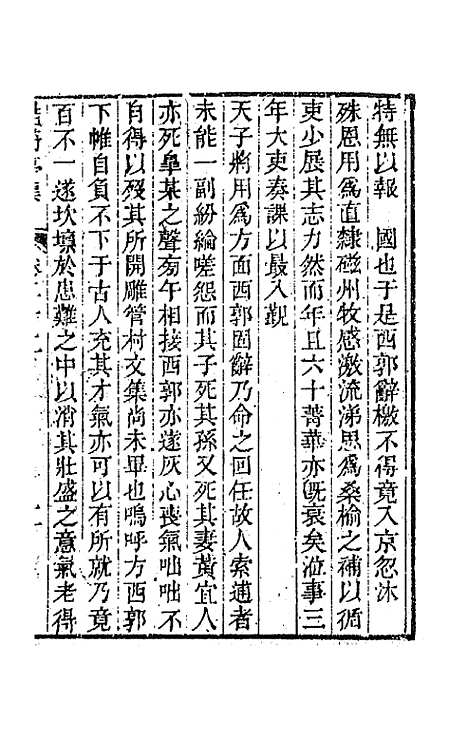 特無以報　國也于是西郭辭檄不得竟入京忽沐
殊恩用爲直隸磁州牧感激流涕思爲桑榆之補以循
吏少展其志力然而年且六十菁華亦旣衰矣涖事三
年大吏奏課以最入觀
天子將用爲方面西郭固辭乃命之回任故人索逋者
未能一副紛綸嗟怨而其子死其孫又死其妻黃宜人
亦死臯某之聲旁午相接西郭亦遂灰心喪氣咄咄不
自得以殁其所開雕管村文集尚未畢也嗚呼方西郭
下帷自負不下于古人充其才氣亦可以有所就乃竟
百不一遂坎壈於患難之中以消其壯盛之意氣老得